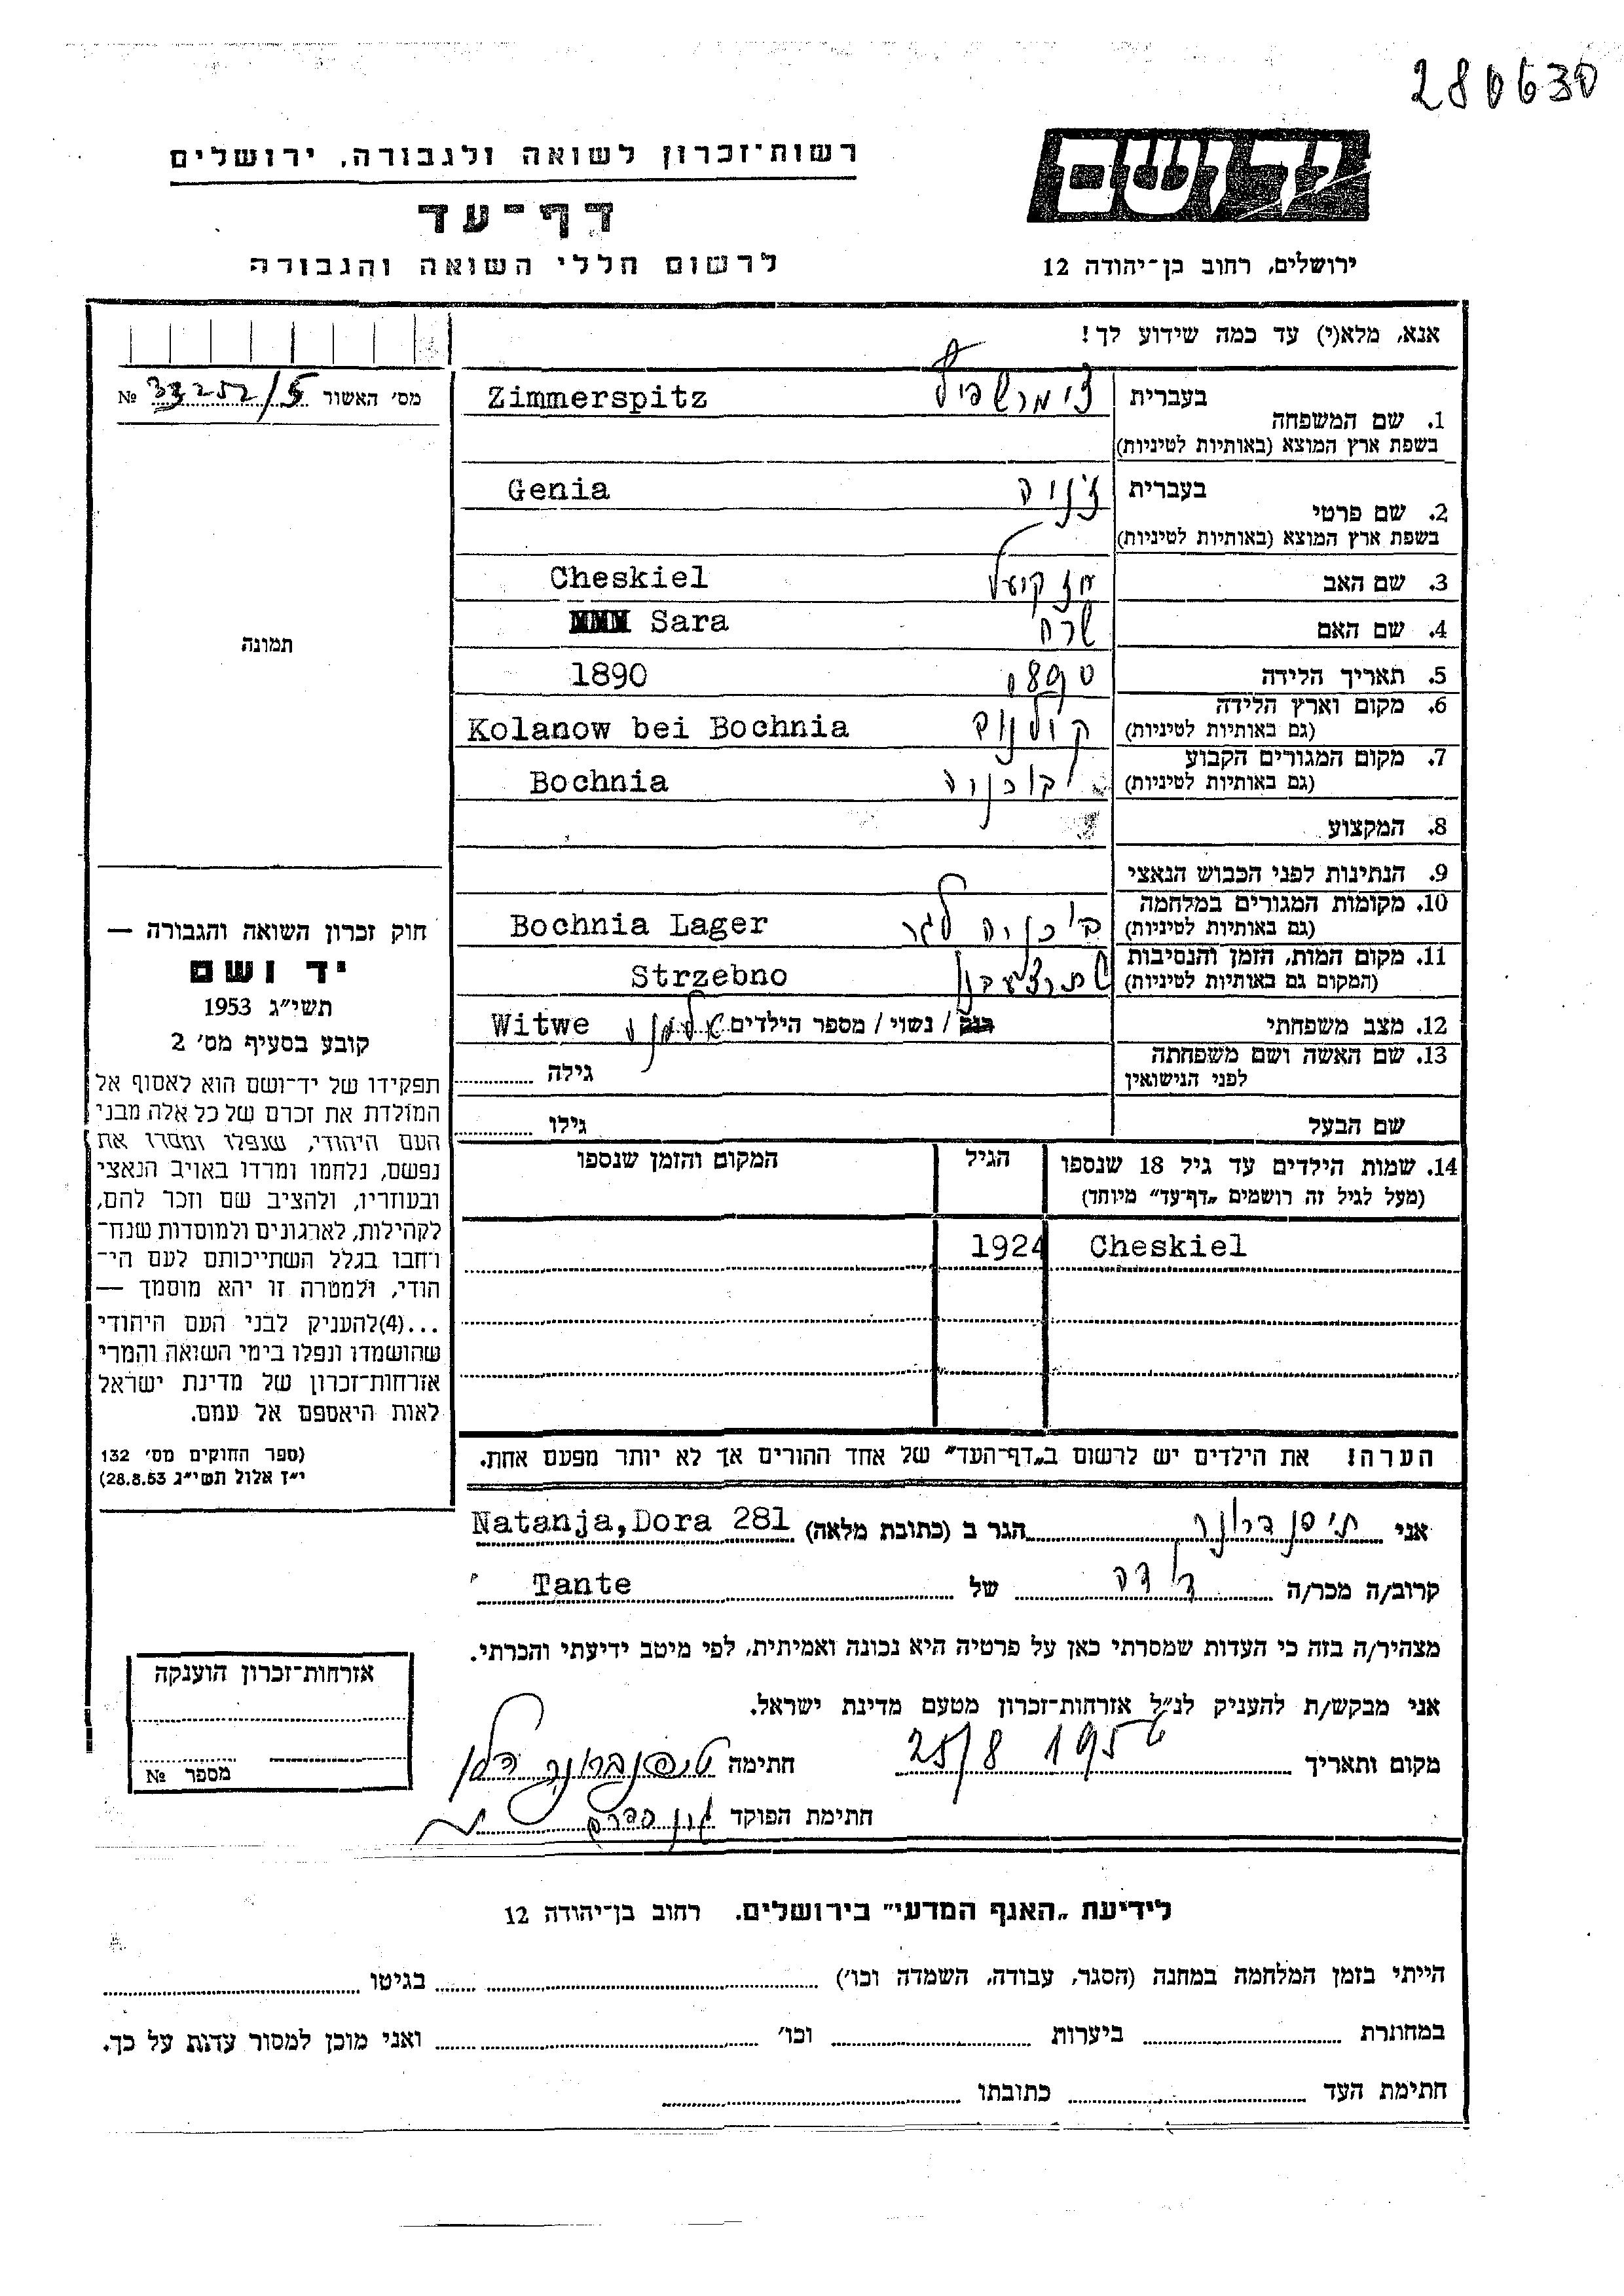 280630
יד ושם
רשות־זכרון לשואה ולגבורה, ירושלים
דף־עד
לרשום חללי השואה והגבורה
ירושלים, רחוב בן־יהודה 12
אנא, מלא(י) עד כמה שידוע לך!
מס׳ האשור 33252/5 №
1. שם המשפחה
בעברית
בשפת ארץ המוצא (באותיות לטיניות)
Zimmerspitz
2. שם פרטי
בעברית
בשפת ארץ המוצא (באותיות לטיניות)
ז׳ניה Genia
3. שם האב יחזקאל Cheskiel
4. שם האם שרה Sara
5. תאריך הלידה 1890 1890
6. מקום וארץ הלידה
(גם באותיות לטיניות)
קולנוב Kolanow bei Bochnia
7. מקום המגורים הקבוע
(גם באותיות לטיניות)
בוכניה Bochnia
8. המקצוע
9. הנתינות לפני הכבוש הנאצי
10. מקומות המגורים במלחמה
(גם באותיות לטיניות)
בוכניה לגר Bochnia Lager
11. מקום המות, הזמן והנסיבות
(המקום גם באותיות לטיניות)
Strzebno
12. מצב משפחתי רוק / נשוי / מספר הילדים אלמנה Witwe
13. שם האשה ושם משפחתה
לפני הנישואין
גילה
שם הבעל גילו
14. שמות הילדים עד גיל 18 שנספו
(מעל לגיל זה רושמים „דף־עד״ מיוחד)
הגיל
המקום והזמן שנספו
Cheskiel 1924
הערה! את הילדים יש לרשום ב„דף־העד״ של אחד ההורים אך לא יותר מפעם אחת.
תמונה
חוק זכרון השואה והגבורה —
יד ושם
תשי״ג 1953
קובע בסעיף מס׳ 2
תפקידו של יד־ושם הוא לאסוף אל
המולדת את זכרם של כל אלה מבני
העם היהודי, שנפלו ומסרו את
נפשם, נלחמו ומרדו באויב הנאצי
ובעוזריו, ולהציב שם וזכר להם,
לקהילות, לארגונים ולמוסדות שנח־
רבו בגלל השתייכותם לעם הי־
הודי, ולמטרה זו יהא מוסמך —
...(4)להעניק לבני העם היהודי
שהושמדו ונפלו בימי השואה והמרי
אזרחות־זכרון של מדינת ישראל
לאות היאספם אל עמם.
(ספר החוקים מס׳ 132
י״ז אלול תשי״ג 28.8.53)
אני הגר ב (כתובת מלאה) Natanja,Dora 281
קרוב/ה מכר/ה דודה של Tante
מצהיר/ה בזה כי העדות שמסרתי כאן על פרטיה היא נכונה ואמיתית, לפי מיטב ידיעתי והכרתי.
אני מבקש/ת להעניק לנ״ל אזרחות־זכרון מטעם מדינת ישראל.
מקום ותאריך 25/8 1956 חתימה
חתימת הפוקד
אזרחות־זכרון הוענקה
מספר №
לידיעת „האגף המדעי״ בירושלים. רחוב בן־יהודה 12
הייתי בזמן המלחמה במחנה (הסגר, עבודה, השמדה וכו׳) בגיטו
במחתרת ביערות וכו׳ ואני מוכן למסור עדות על כך.
חתימת העד כתובתו